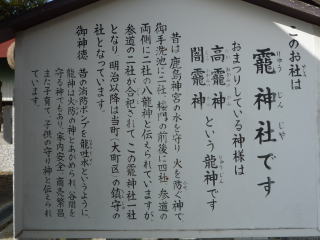 このお社は
龗神社です
りゅう じん じゃ
おまつりしている神様は
高龗神
闇龗神 という龍神です
昔は鹿島神宮の水を守り、火を防ぐ神で
御手洗池に二社、楼門の前後に四社、参道の
両側に二社の八龍神と伝えられていますが、
参道の二社が合祀されて、この龗神社一社
となり、明治以降は当町(大町区)の鎮守の
社となっています。
御神徳 昔の消防ポンプを龍吐水というように、
龍神は火防の神とあがめられ、谷間を
守る神でもあり、家内安全、商売繁昌
また子育て、子供の守り神と伝えられ
ています。